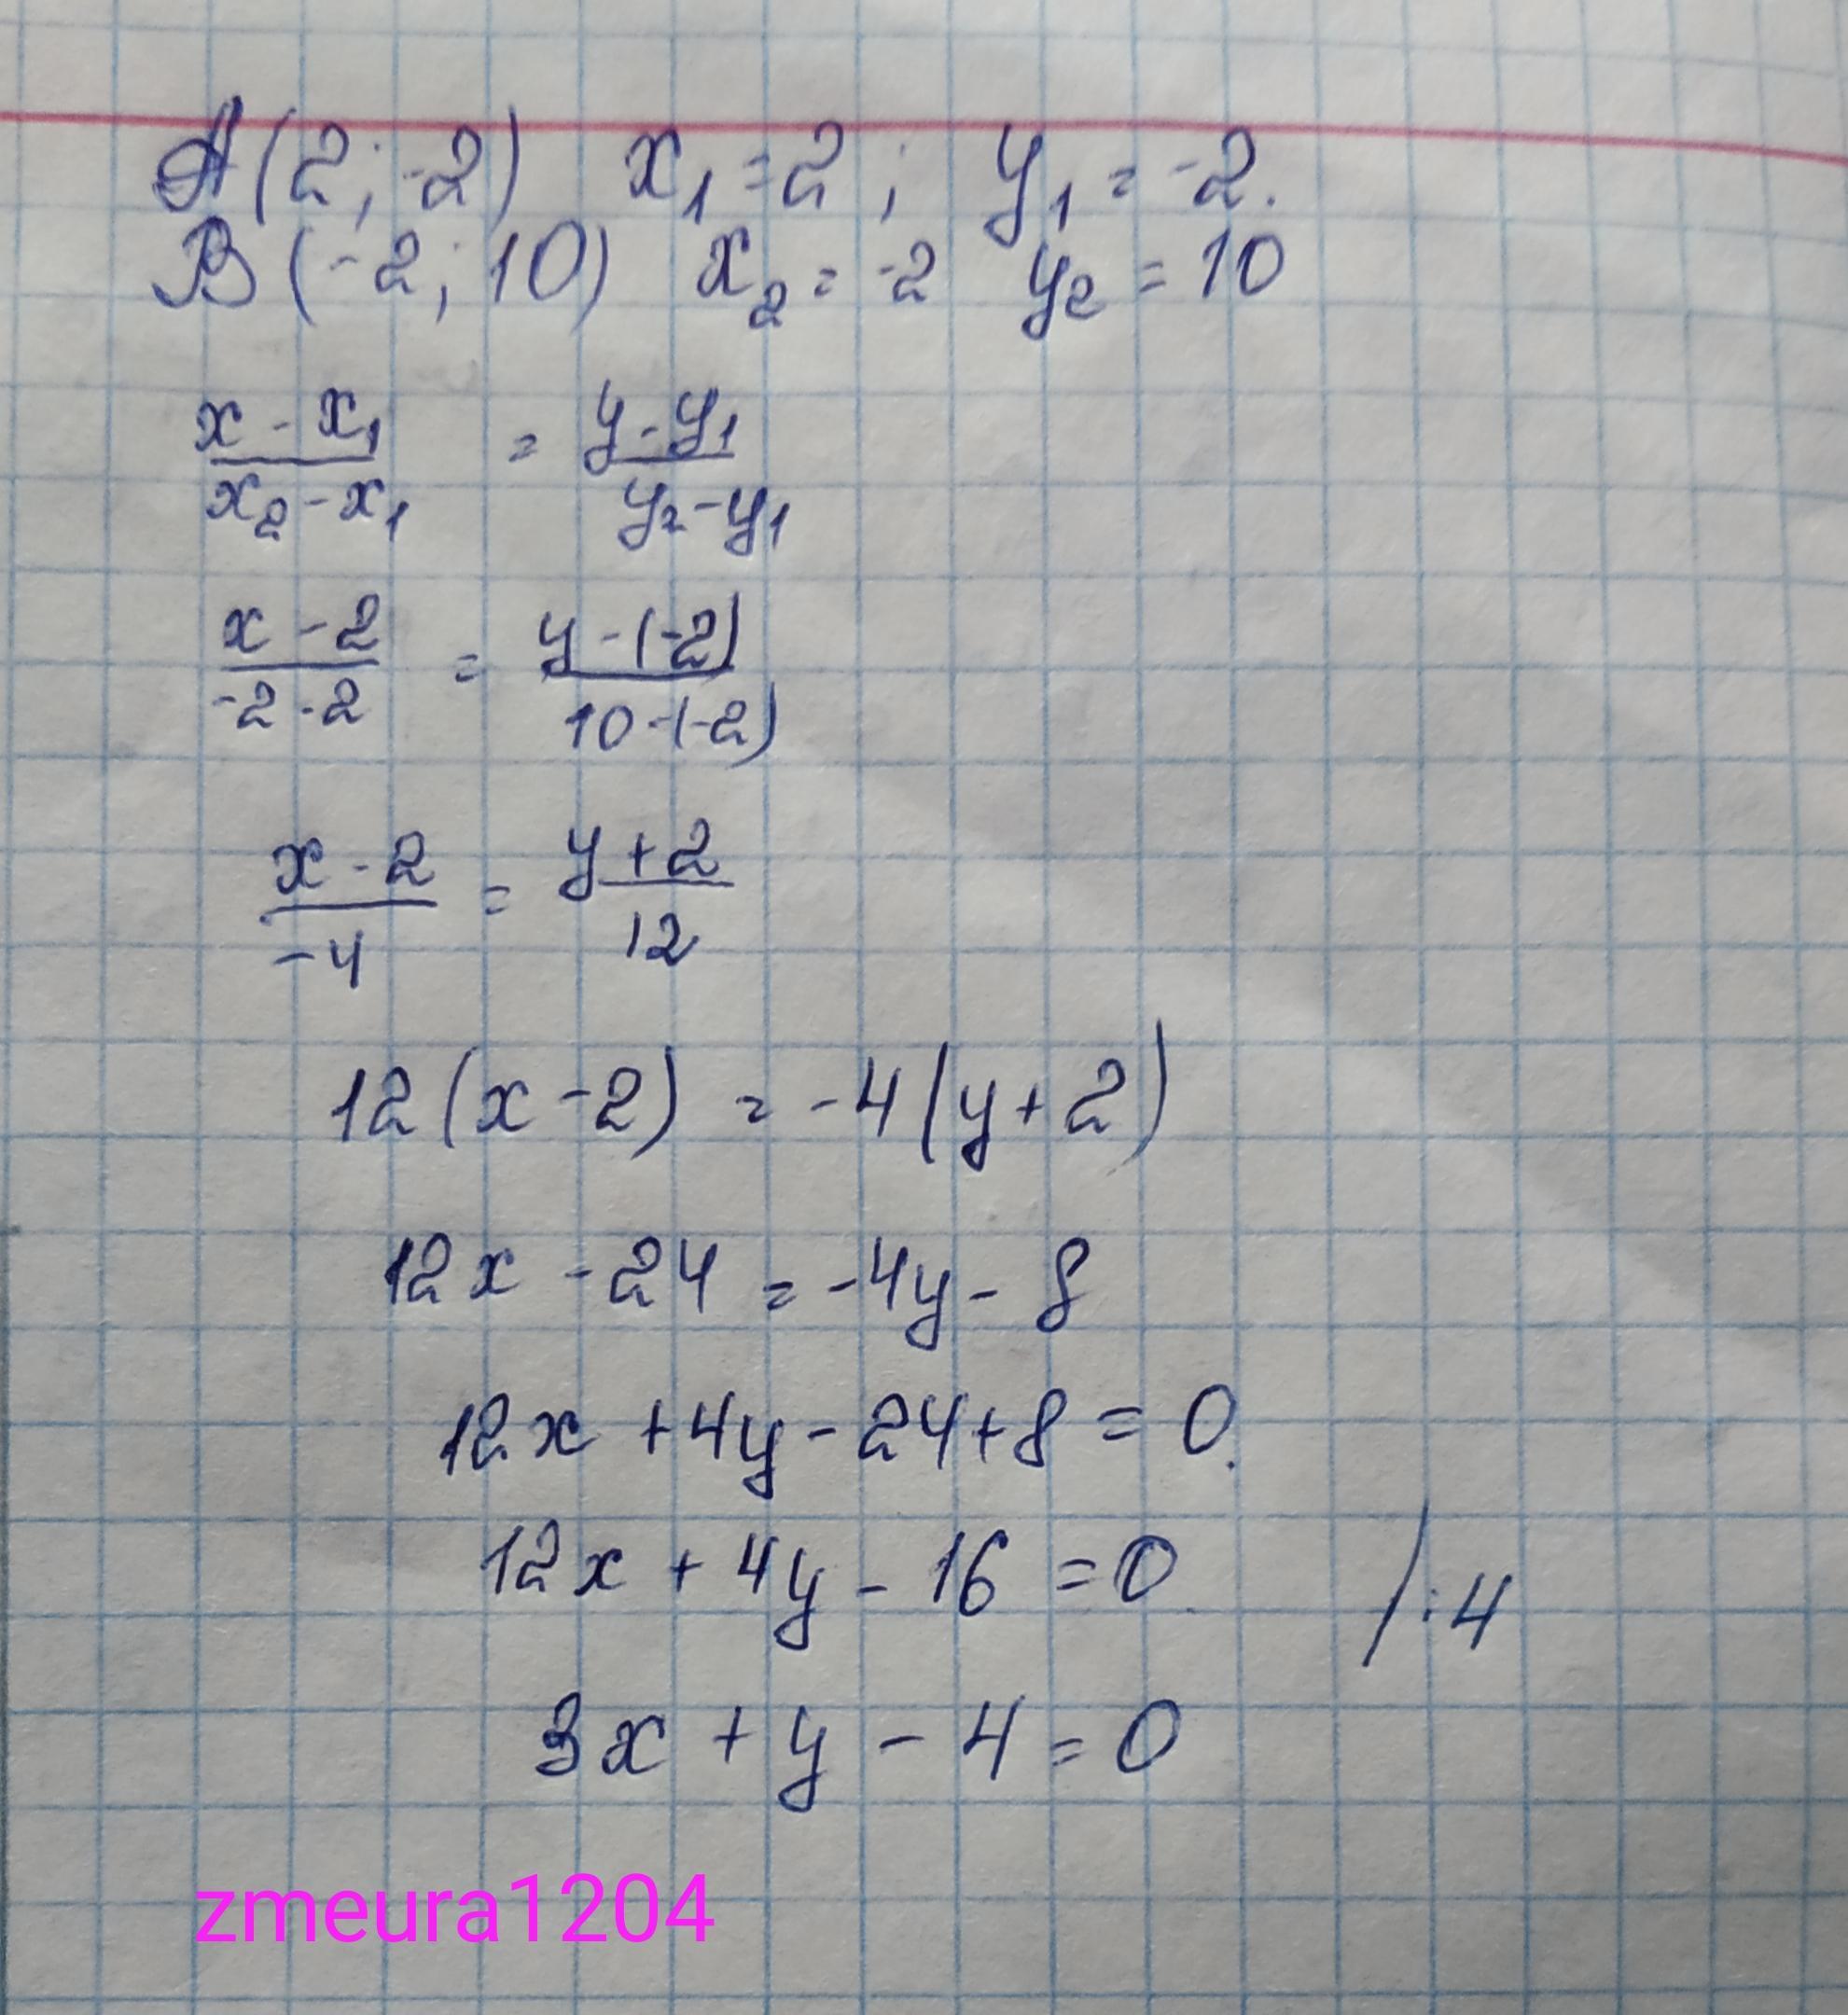 A(2; -2) x₁ = 2; y₁ = -2.
B(-2; 10) x₂ = -2 y₂ = 10
(x - x₁)/(x₂ - x₁) = (y - y₁)/(y₂ - y₁)
(x - 2)/(-2 - 2) = (y - (-2))/(10 - (-2))
(x - 2)/(-4) = (y + 2)/12
12(x - 2) = -4(y + 2)
12x - 24 = -4y - 8
12x + 4y - 24 + 8 = 0.
12x + 4y - 16 = 0. /:4
3x + y - 4 = 0
zmeura1204